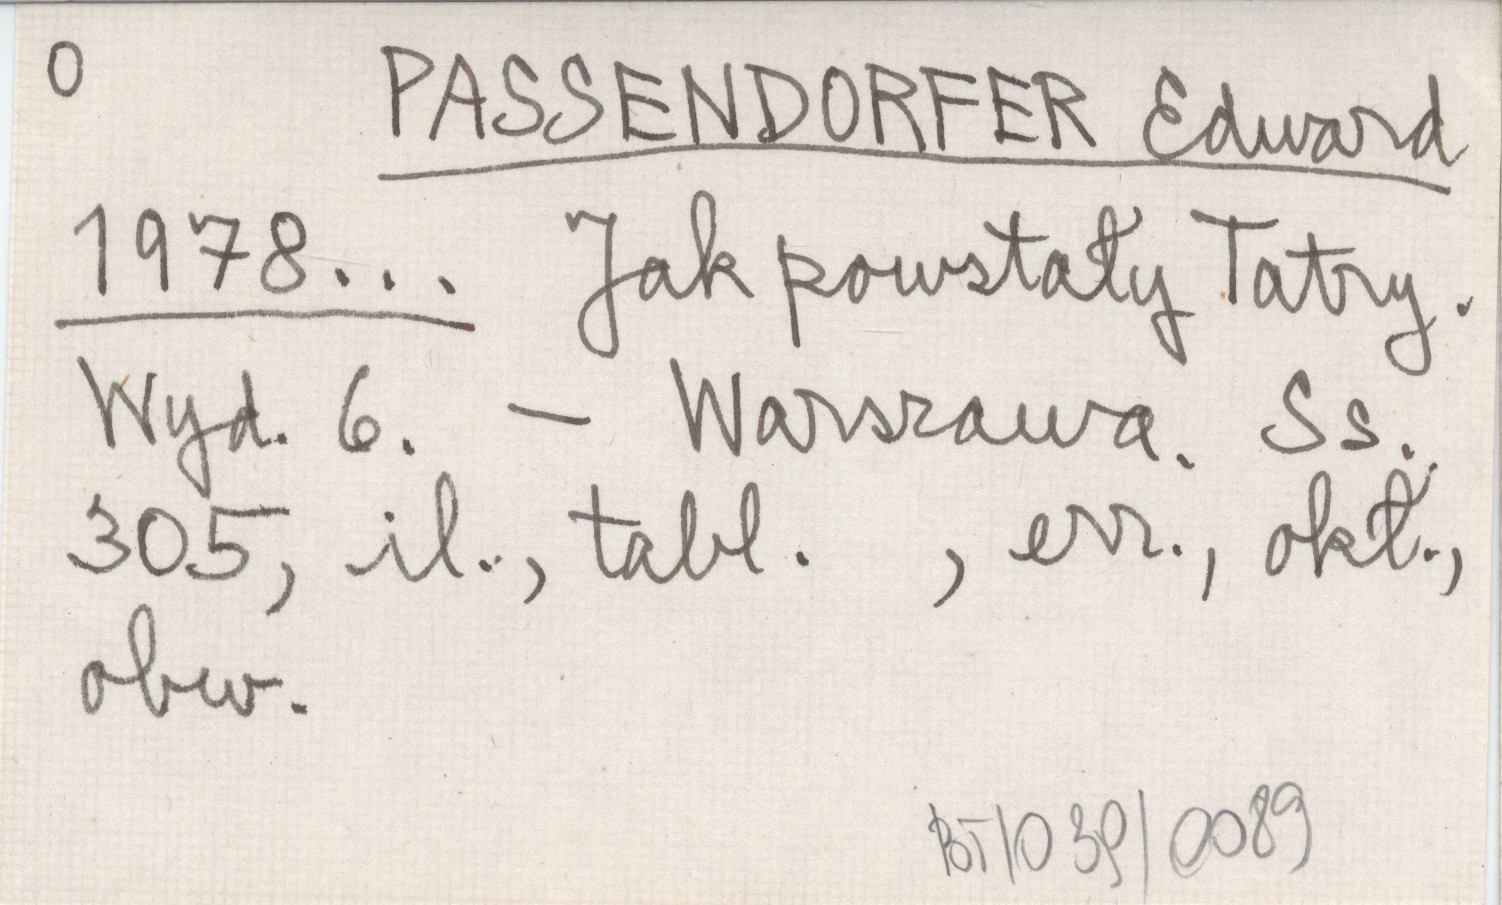 0 PASSENDORFER Edward
1978... Jak powstały Tatry.
Wyd. 6. - Warszawa. Ss.
305, il., tabl. , err., okł.,
obw.
BT/039/0089